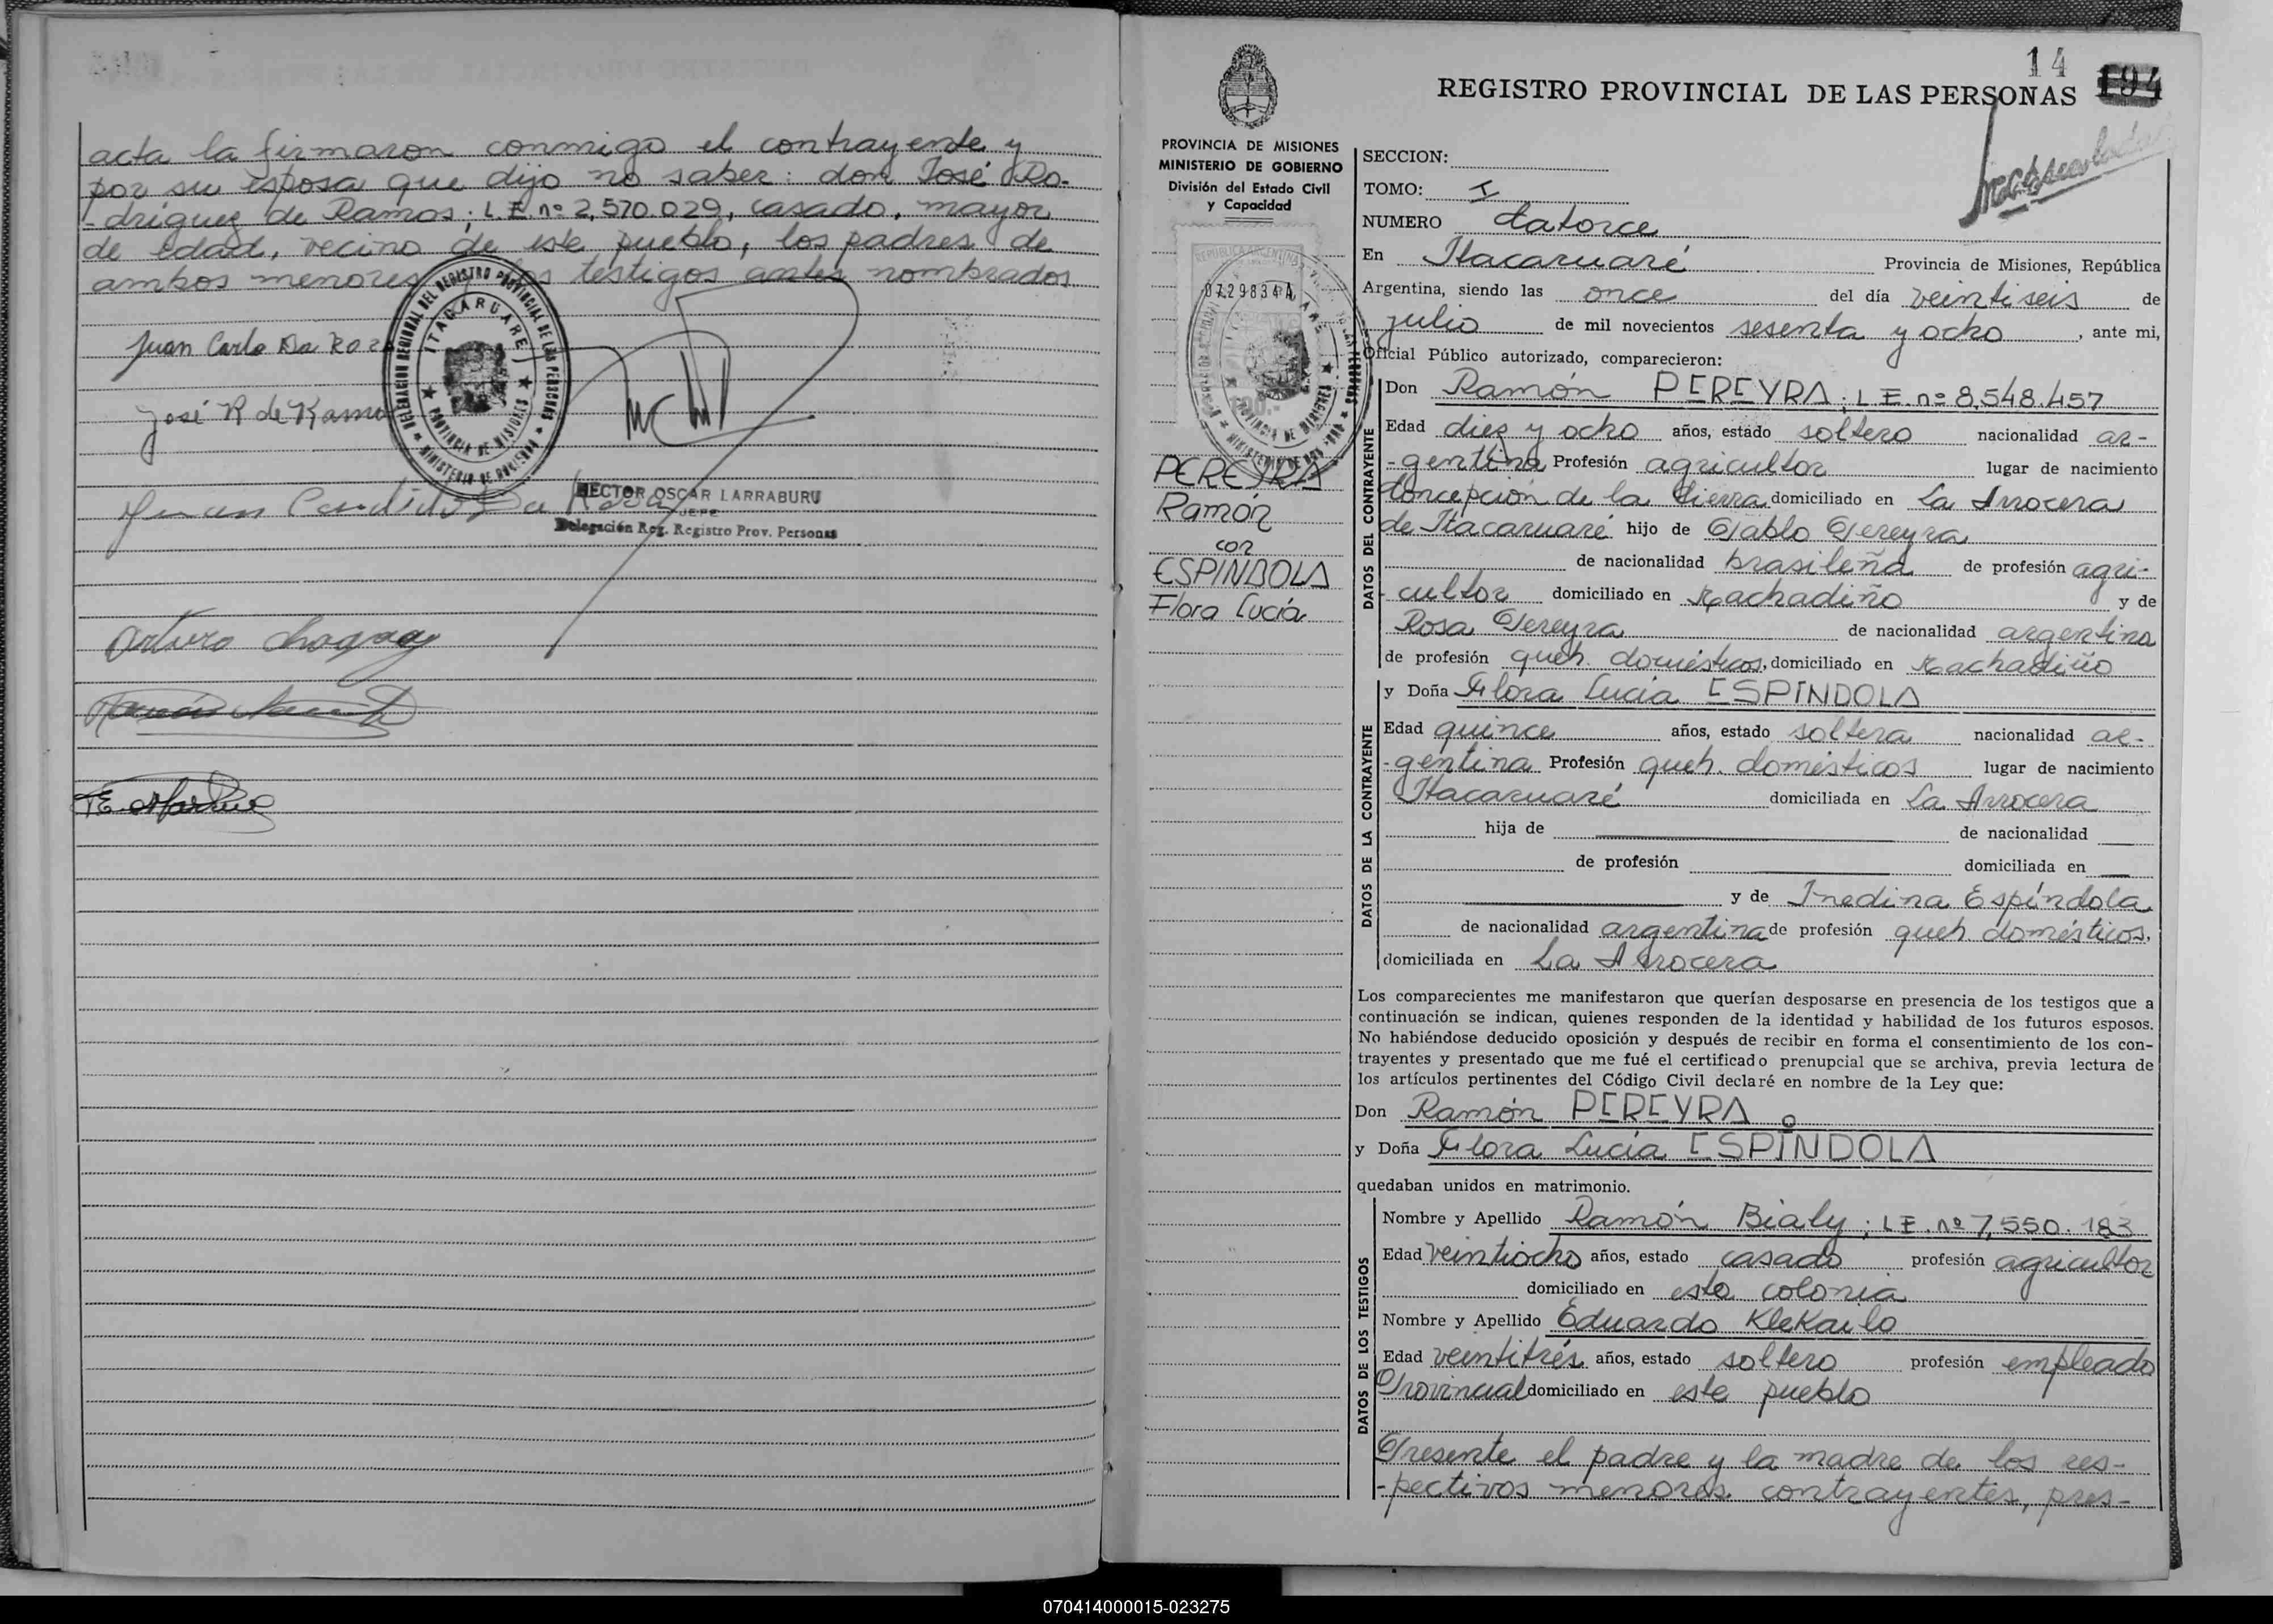 acta la firmaron conmigo el contrayente y
por su esposa que dijo no saber: don José Ro-
-dríguez de Ramos; L.E. nº 2,570.029, casado, mayor
de edad, vecino de este pueblo, los padres de
ambos menores los testigos antes nombrados
Juan Carlo Da Roza
José R de Ramo
DELEGACION REGIONAL DEL REGISTRO PROVINCIAL DE LAS PERSONAS
ITACARUARE
PROVINCIA DE MISIONES
MINISTERIO DE GOBIERNO
HECTOR OSCAR LARRABURU
JEFE
Delegación Reg. Registro Prov. Personas
Juan Candido Da Roza
Arturo
14
194
REGISTRO PROVINCIAL DE LAS PERSONAS
PROVINCIA DE MISIONES
MINISTERIO DE GOBIERNO
División del Estado Civil
y Capacidad
REPUBLICA ARGENTINA
0729834A
PEREYRA
Ramón
con
ESPINDOLA
Flora Lucía
SECCION:
TOMO: I
NUMERO Catorce
En Itacaruaré Provincia de Misiones, República
Argentina, siendo las once del día veintiseis de
julio de mil novecientos sesenta y ocho, ante mi,
Oficial Público autorizado, comparecieron:
DATOS DEL CONTRAYENTE
Don Ramón PEREYRA; L.E. nº 8,548.457
Edad diez y ocho años, estado soltero nacionalidad ar-
-gentina Profesión agricultor lugar de nacimiento
Concepción de la Sierra domiciliado en La Arrocera
de Itacaruaré hijo de Pablo Pereyra
de nacionalidad brasileña de profesión agri-
-cultor domiciliado en Rachadiño y de
Rosa Pereyra de nacionalidad argentina
de profesión queh. domésticos, domiciliado en Rachadiño
DATOS DE LA CONTRAYENTE
y Doña Flora Lucía ESPINDOLA
Edad quince años, estado soltera nacionalidad ar-
-gentina Profesión queh. domésticos lugar de nacimiento
Itacaruaré domiciliada en La Arrocera
hija de de nacionalidad
de profesión domiciliada en
y de Inedina Espíndola
de nacionalidad argentina de profesión queh. domésticos,
domiciliada en La Arrocera
Los comparecientes me manifestaron que querían desposarse en presencia de los testigos que a
continuación se indican, quienes responden de la identidad y habilidad de los futuros esposos.
No habiéndose deducido oposición y después de recibir en forma el consentimiento de los con-
trayentes y presentado que me fué el certificado prenupcial que se archiva, previa lectura de
los artículos pertinentes del Código Civil declaré en nombre de la Ley que:
Don Ramón PEREYRA
y Doña Flora Lucía ESPÍNDOLA
quedaban unidos en matrimonio.
DATOS DE LOS TESTIGOS
Nombre y Apellido Ramón Bialy; L.E. nº 7,550.183
Edad veintiocho años, estado casado profesión agricultor
domiciliado en esta colonia
Nombre y Apellido Eduardo Klekailo
Edad veintitrés años, estado soltero profesión empleado
Provincial domiciliado en este pueblo
Presente el padre y la madre de los res-
-pectivos menores contrayentes, pres-
070414000015-023275